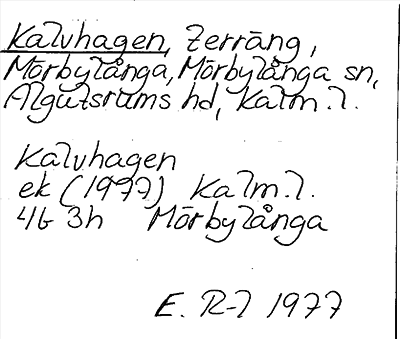 Kalvhagen, terräng,
Mörbylånga, Mörbylånga sn,
Algutsrums hd, Kalm.l.
Kalvhagen
ek (1977) Kalm.l.
4G 3h Mörbylånga
E. R-l 1977